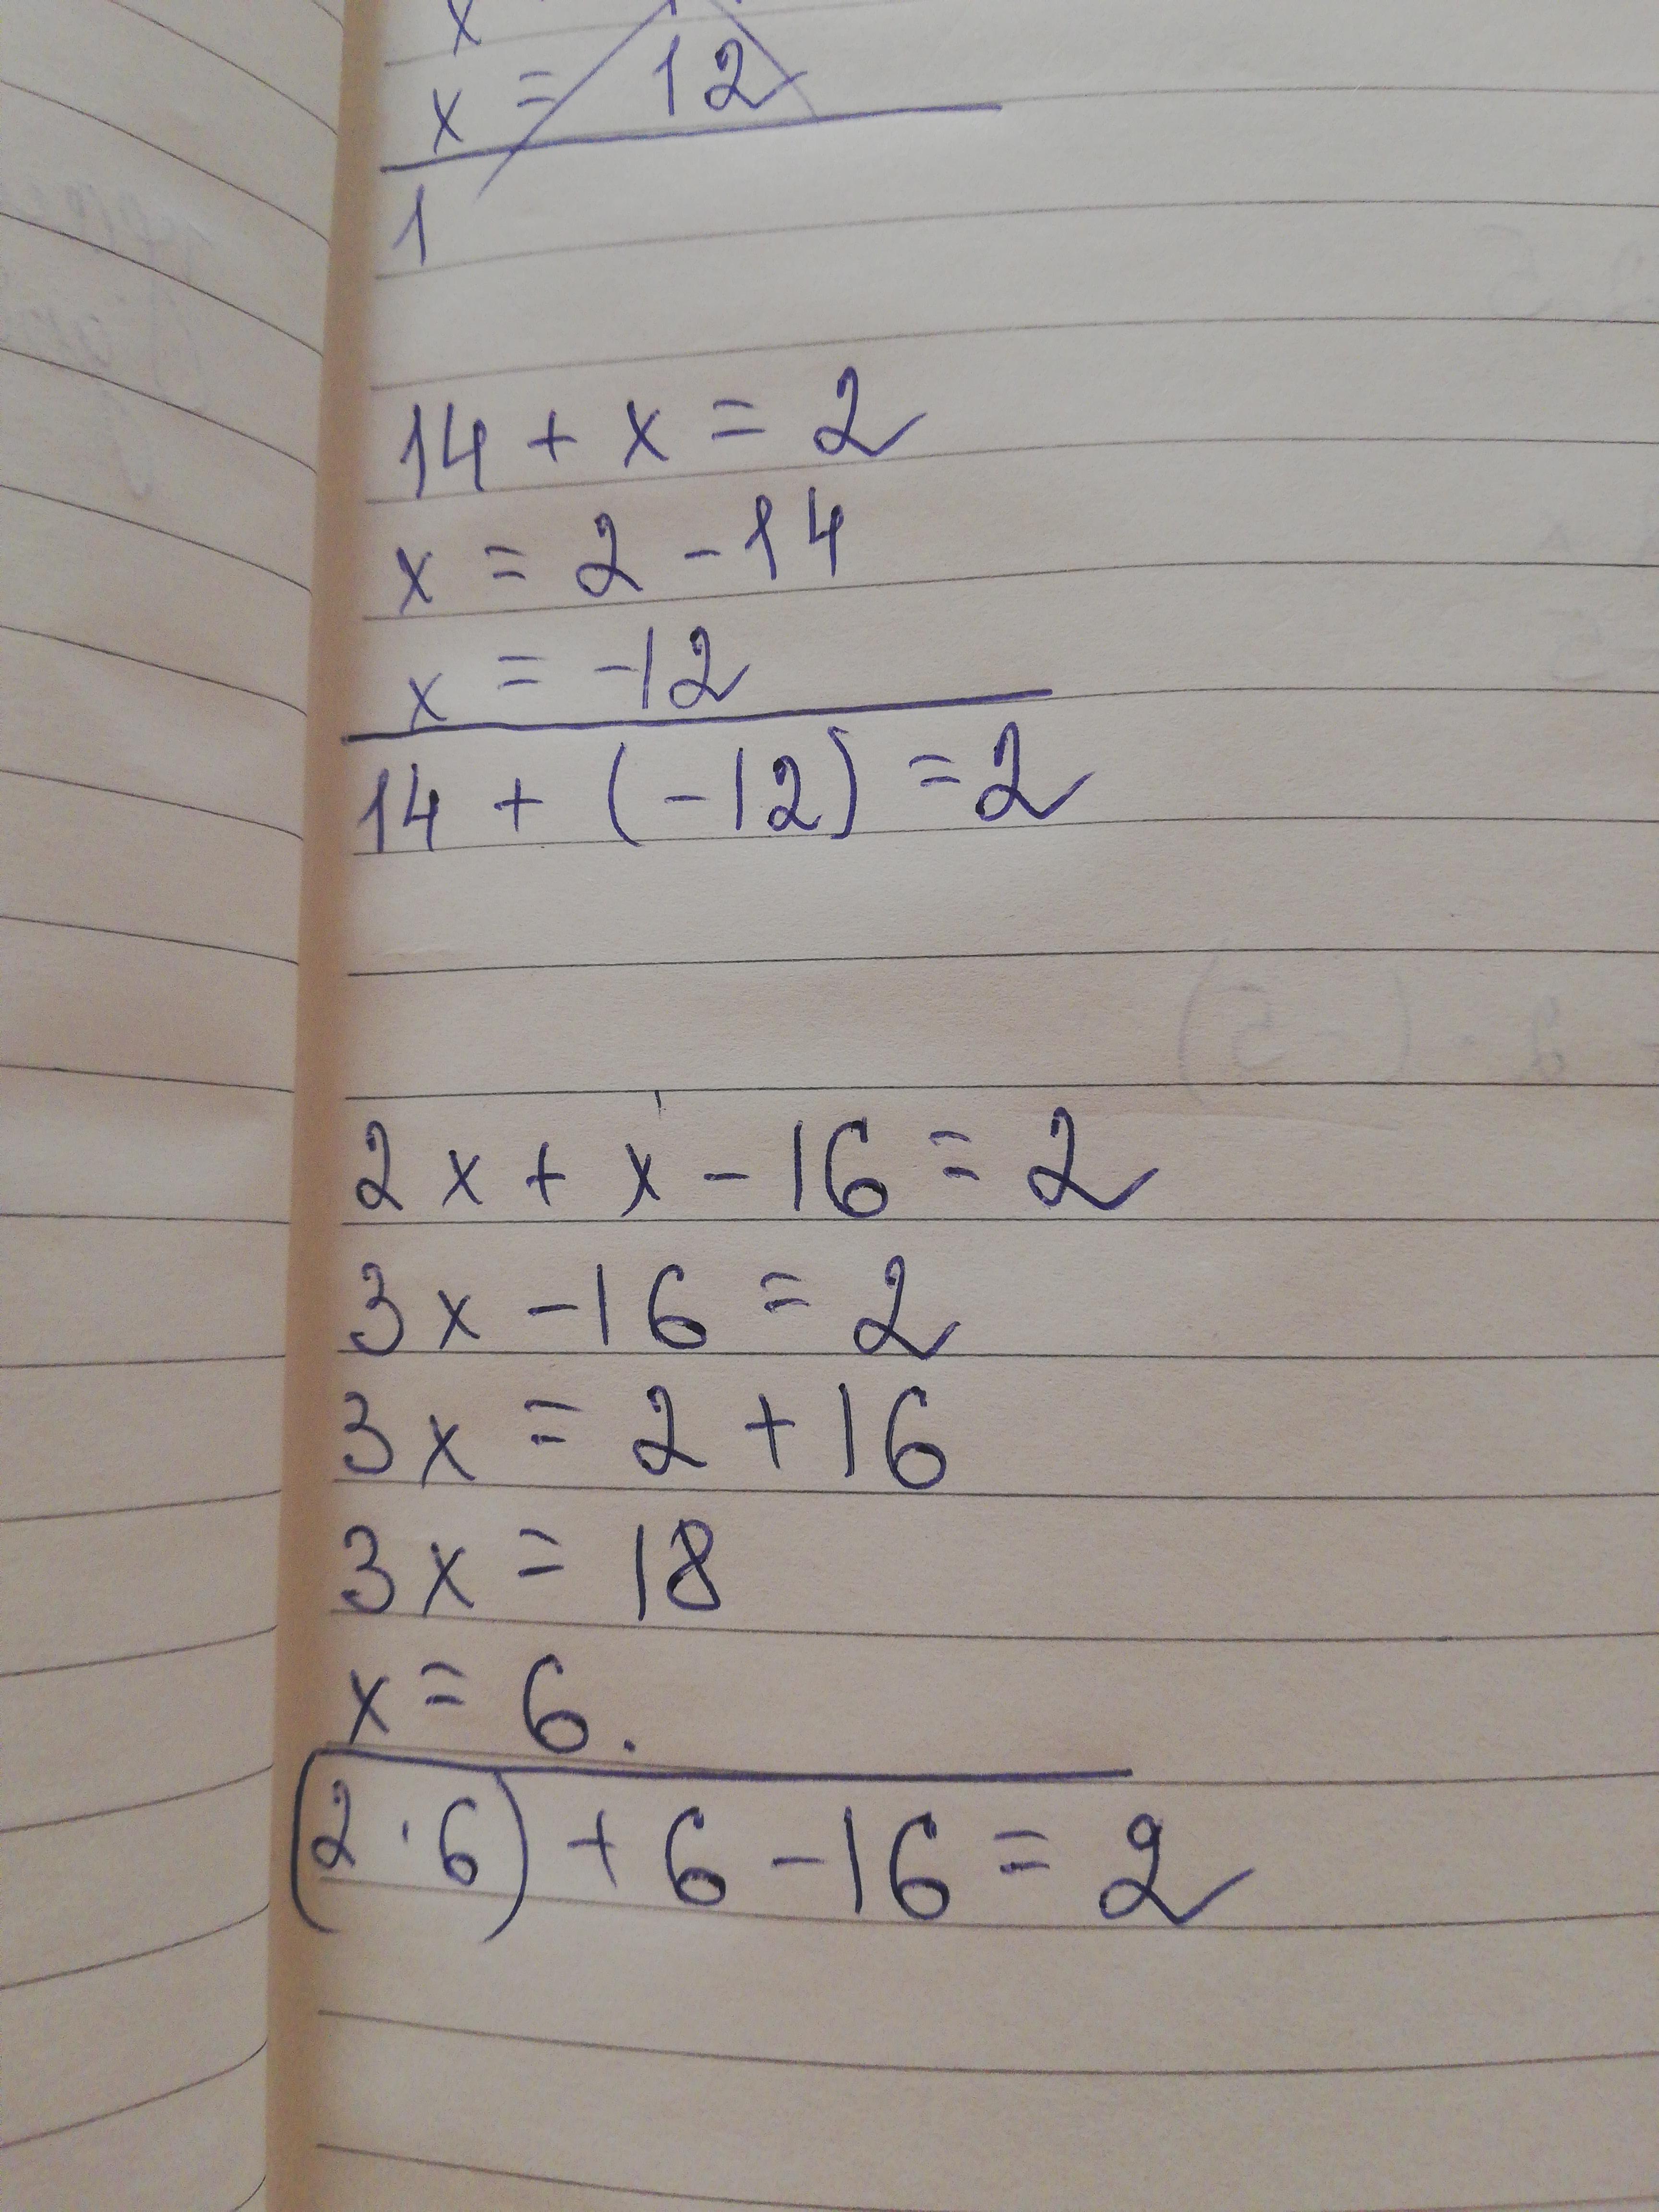 x
x = 12
1
14 + x = 2
x = 2 - 14
x = -12
14 + (-12) = 2
2x + x - 16 = 2
3x - 16 = 2
3x = 2 + 16
3x = 18
x = 6.
(2 · 6) + 6 - 16 = 2